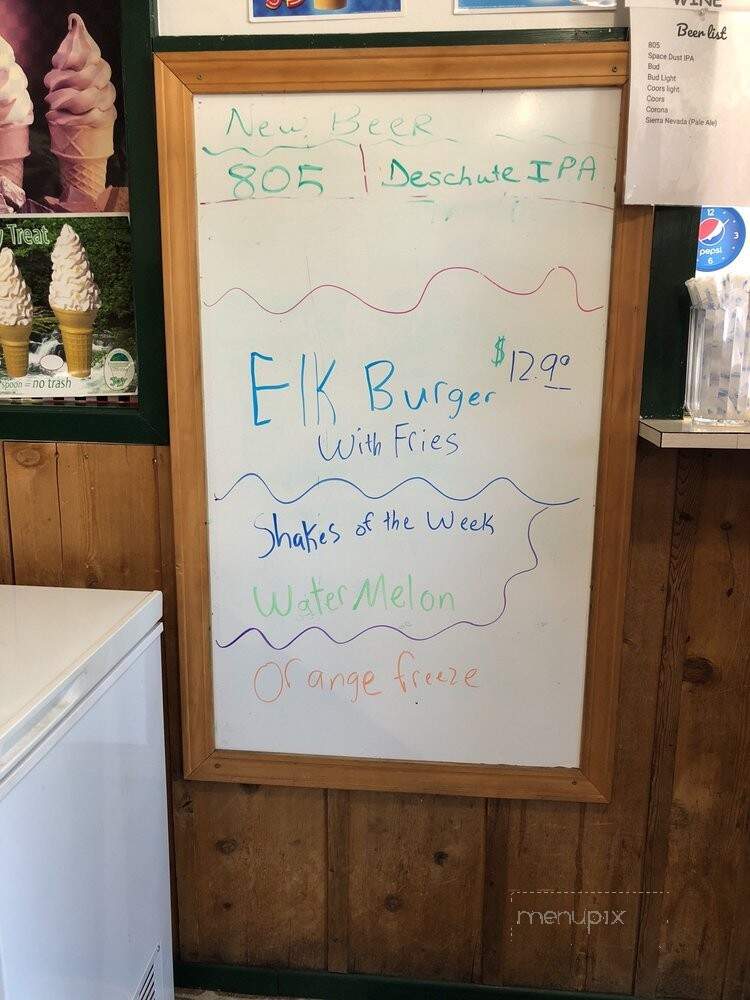 WINE
Beer list
805
Space Dust IPA
Bud
Bud Light
Coors light
Coors
Corona
Sierra Nevada (Pale Ale)
New Beer
805 | Deschute IPA
Elk Burger $12.90
With Fries
Shakes of the Week
Water Melon
Orange freeze
Treat
spoon = no trash
12
3
pepsi
6
menupix